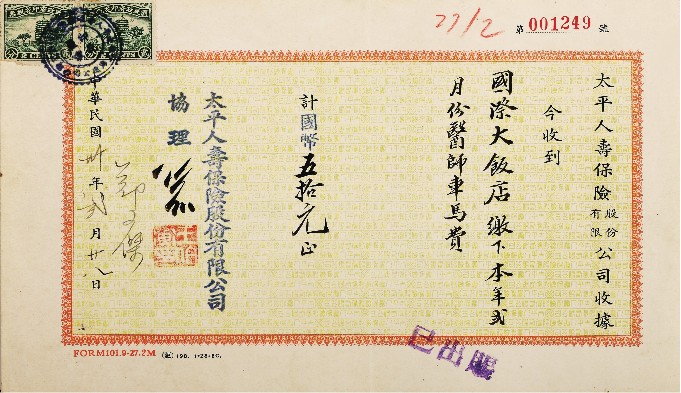 27/2
第 001249 號
太平人壽保險股份有限公司收據
今收到
國際大飯店繳下本年弍
月份醫師車馬費
計國幣五拾元正
太平人壽保險股份有限公司
協理
中華民國卅年弍月廿八日
FORM101.9-27.2M
已出賬